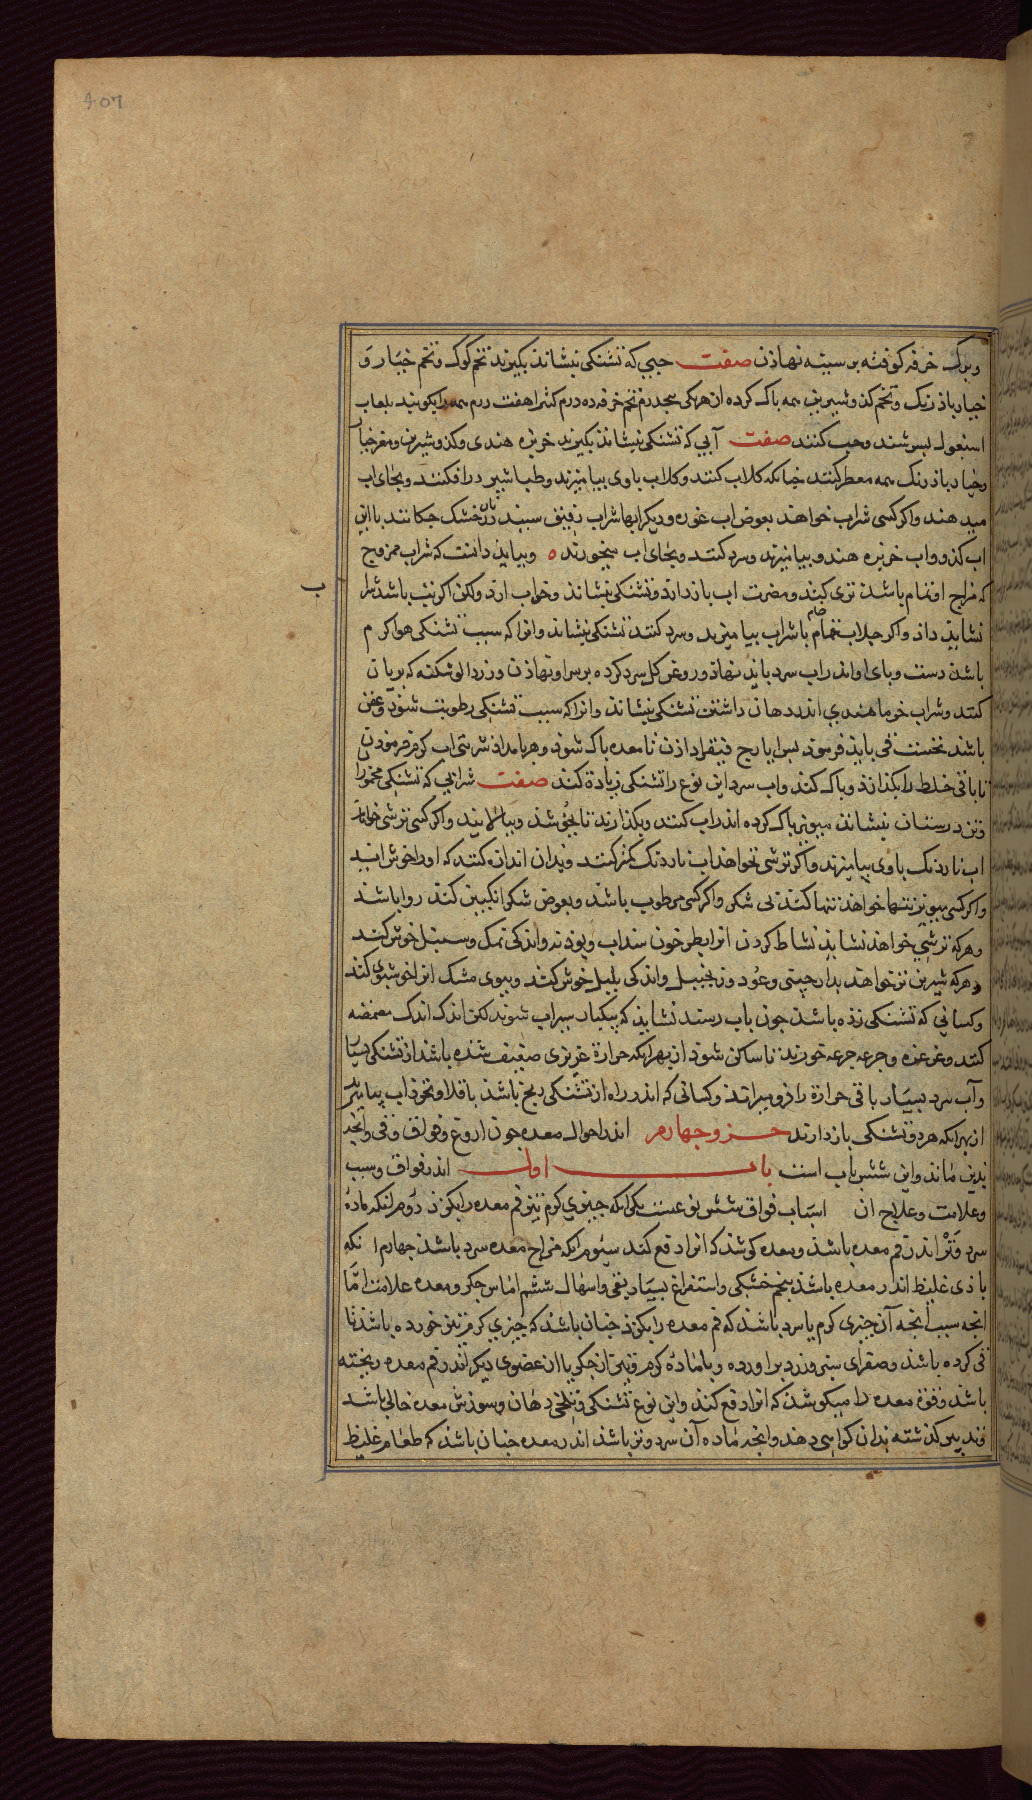 407
وبرگ خرفه کوفته بر سینه نهاذن صفت حبی که تشنکی بنشاند بکیرند تخم کوک و تخم خیار و
خیار باذرنک و تخم کذو شیرین همه باک کرده از هر یکی سه درم تخم خرفه ده درم کثیرا هفت درم همه را بکوبند بلعاب
اسبغول بسرشند و حب کنند صفت آبی که تشنکی بنشاند بکیرند خربزه هندی و کذو شیرین و مغز خیار
و خیار باذرنک همه معطر کنند جنانکه کلاب کنند و کلاب باوی بیامیزند و طباشیر در افکنند و بجای اب
میدهند و اکر کسی شراب خواهد بعوض اب غوره و دیکر ابها شراب رقیق سبید نان خشک جکانند با این
اب کذو و اب خربزه هندو بیامیزند و سرد کنند و بجای اب میخورند ه و بباید دانست که شراب ممزوج
که مزاج او تمام باشد تری کند و مضرت اب باز دارد و تشنکی بنشاند و خواب ارد ولکن اکر تب باشد شراب
نشاید داد و اکر جلاب خام باشراب بیامیزند و سرد کنند تشنکی بنشاند و انرا که سبب تشنکی هوا کرم
باشد دست و بای او اندر اب سرد باید نهاد و روغن کل سرد کرده بر سر او نهاذن و زردالو شکنه که بریان
کنند و شراب خرما هندی اندر دهان داشتن تشنکی بنشاند و انرا که سبب تشنکی رطوبت شور و عفن
باشد نخست قی باید فرمود بس ایارج فیقرا دادن تا معده باک شود و هر بامداد شربتی اب کرم فرمودن
تا باقی خلط را بکدازد و باک کند و اب سرد این نوع را تشنکی زیادة کند صفت شرابی که تشنکی مخمور را
و تن درستان بنشاند میویز باک کرده اندر اب کنند و بکذارند تا بجوشد و ببالایند و اکر کسی ترشی خواهد
اب ناردنک باوی بیامیزند و اکر ترشی نخواهد اب ناردنک کمتر کنند و بدان اندازه کنند که او را خوش اید
و اکر کسی میویز تنها خواهد تنها کنند بی شکر و اکر کسی مرطوب باشد و بعوض شکر انکبین کند روا باشد
و هرکه ترشی خواهد نشاید نشاط کردن انرا بطرخون سداب و بوذنه و اندکی نمک و سنبل خوش کند
و هرکه شیرین تر خواهد بدارجینی و عود و زنجبیل و اندکی بلبل خوش کنند و ببوی مشک انرا خوشبوی کند
و کسانی که تشنکی زده باشد جون باب رسند نشاید که بیکبار سیراب شوند لکن اندک اندک مضمضه
کنند و غرغره و جرعه جرعه خورند تا ساکن شود از بهر انکه حرارة غریزی ضعیف شده باشد از تشنکی بسیار
و آب سرد بسیار باقی حرارة را فرو میراند و کسانی که اندر راه از تشنکی برنج باشند باقلا و نخود اب بیامیزند
از بهر انکه هر دو تشنکی باز دارند جزو جهارم اندر احوال معده جون اروغ و فواق و قی و انجه
بدین ماند و این شش باب است باب اول اندر فواق و سبب
و علامت و علاج ان اسباب فواق شش نوعست یکی انکه جیزی کرم تیز فم معده را بکزد دوم انکه مادة
سرد و تر اندر فم معده باشد و معده کوشد که انرا دفع کند سیوم انکه مزاج معده سرد باشد جهارم انکه
باذی غلیظ اندر معده باشد بنجم خشکی و استفراغ بسیار بقی و اسهال ششم اماس جکر و معده علامت اما
انجه سبب انجه آن جیزی کرم یا سرد باشد که فم معده را بکزد جنان باشد که جیزی کرم تیز خورده باشد تا
قی کرده باشد و صفرای سبز و زرد براورده و یا ماده کرم و تیز از جکر یا از عضوی دیکر اندر فم معده ریخته
باشد و قوة معده را میکوشد که انرا دفع کند و این نوع تشنکی و تلخی دهان و سوزش معده خالی باشد
و تدبیر کذشته بدان کواهی دهد و انجه ماده آن سرد و تر باشد اندر معده جنان باشد که طعام غلیظ
ب